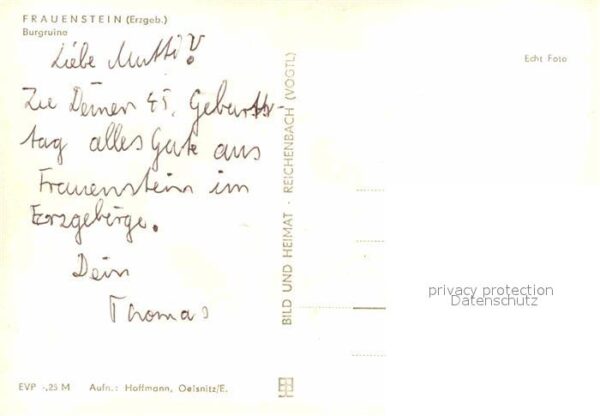 FRAUENSTEIN (Erzgeb.)
Burgruine
Liebe Mutti!
Zu Deinen 45. Geburts-
tag alles Gute aus
Frauenstein im
Erzgebirge.
Dein
Thomas
BILD UND HEIMAT · REICHENBACH (VOGTL)
Echt Foto
privacy protection
Datenschutz
EVP -,25 M Aufn.: Hoffmann, Oelsnitz/E.